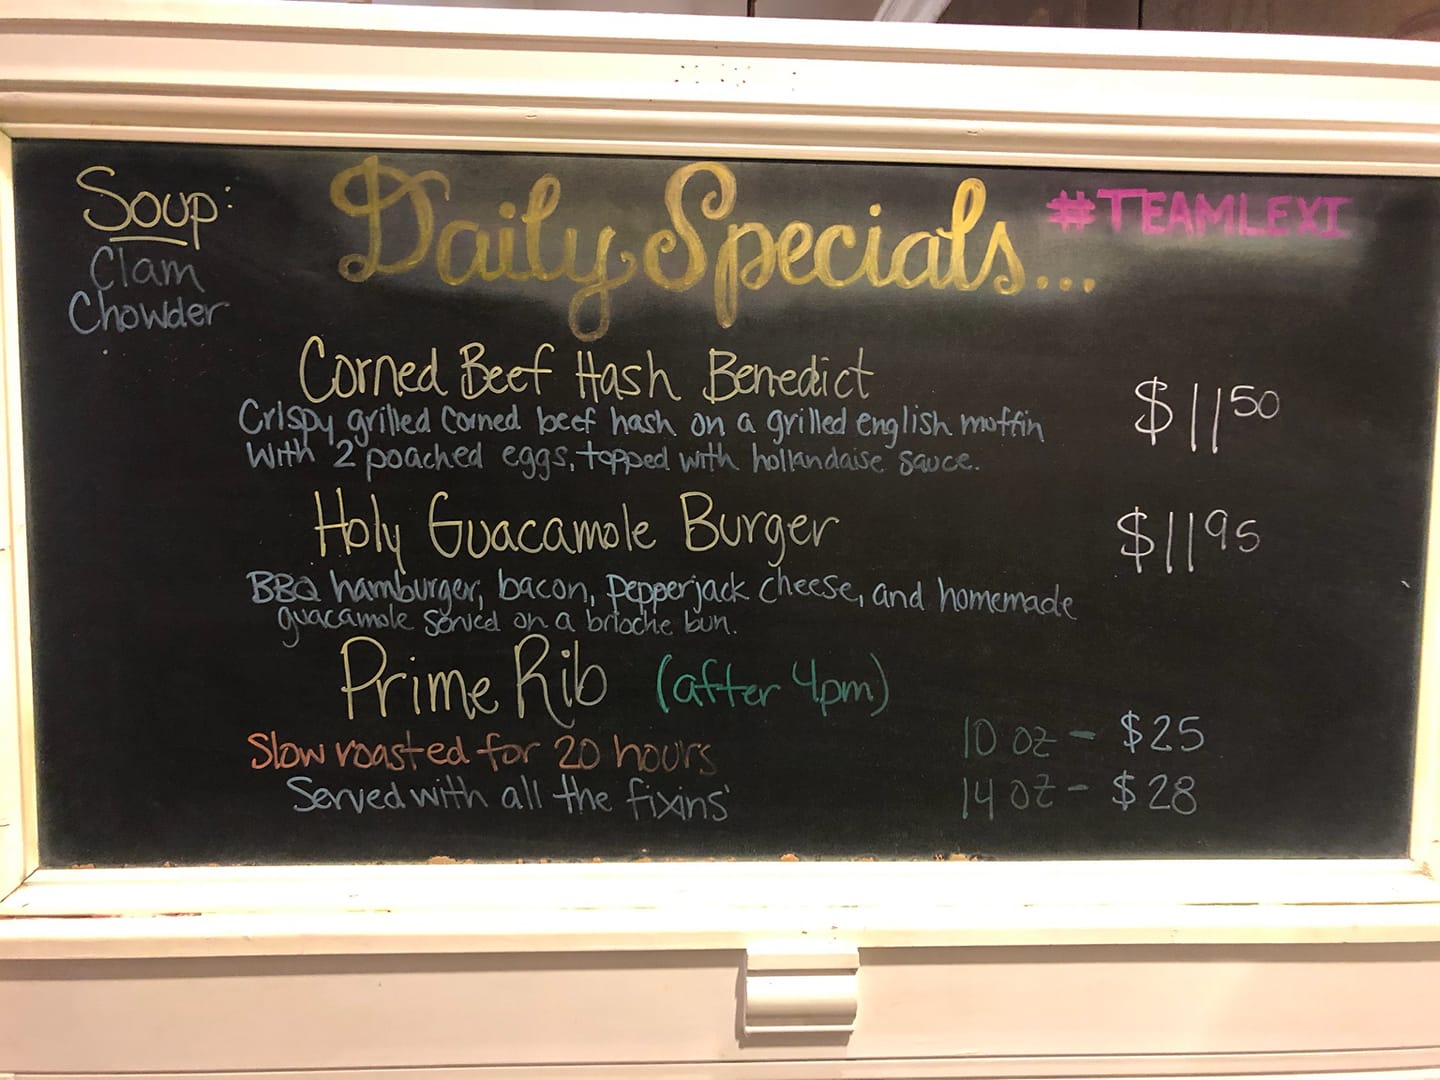 Soup:
Clam
Chowder
Daily Specials...
#TEAMLEXI
Corned Beef Hash Benedict
$11 50
Crispy grilled corned beef hash on a grilled english moffin
with 2 poached eggs, topped with hollandaise sauce.
Holy Guacamole Burger
$11 95
BBQ hamburger, bacon, pepperjack cheese, and homemade
guacamole served on a brioche bun.
Prime Rib (after 4pm)
Slow roasted for 20 hours
10 oz - $25
Served with all the fixins'
14 oz - $28